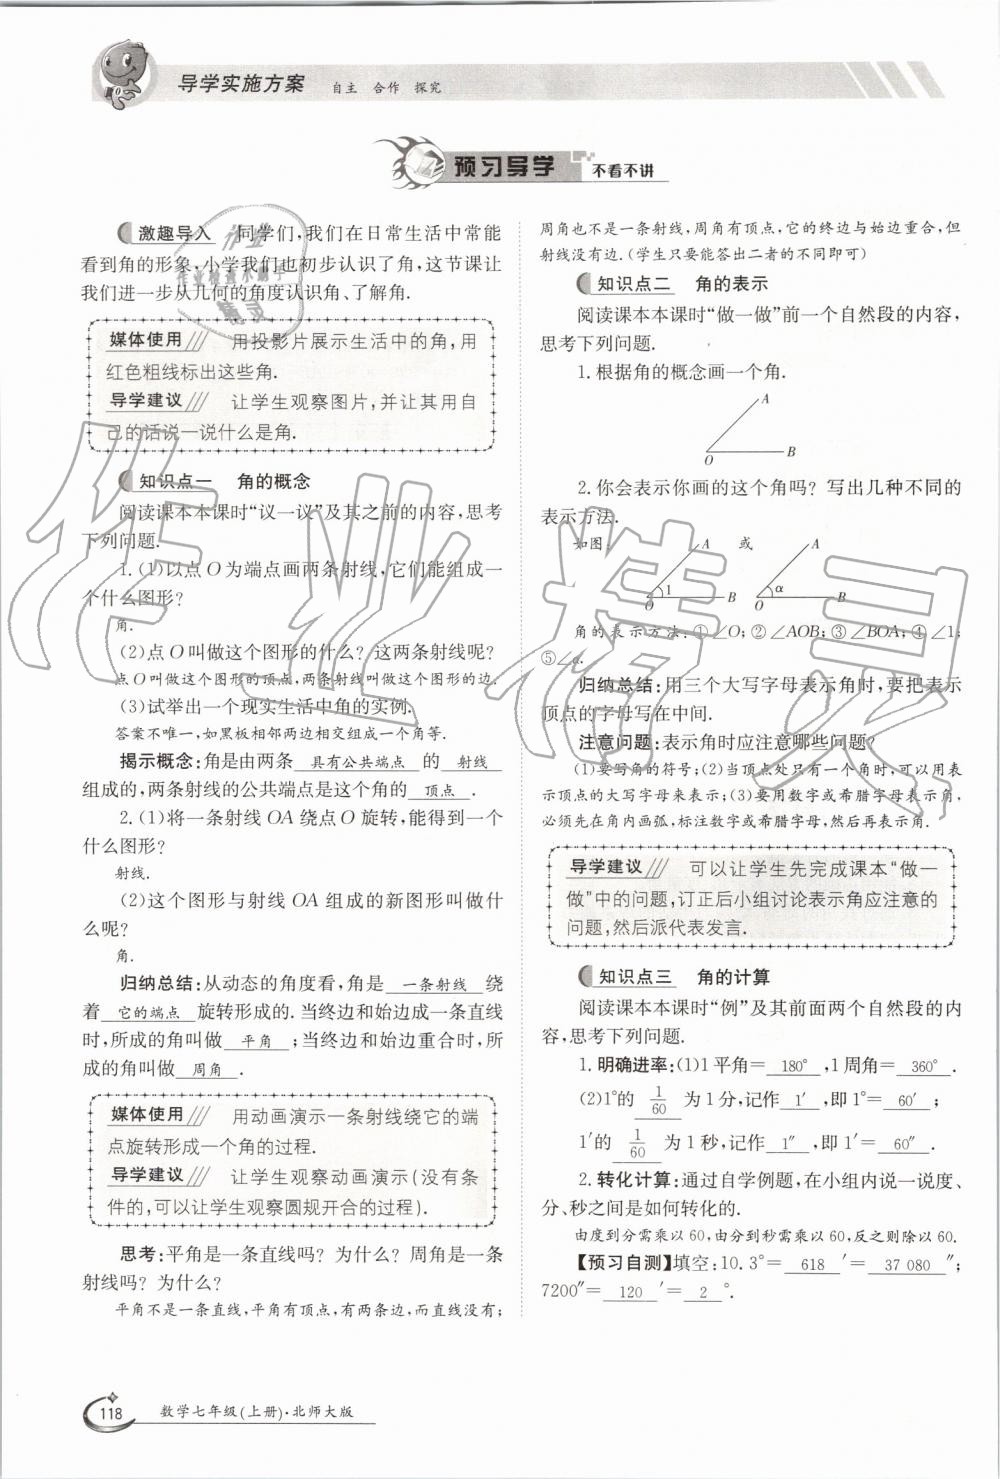 导学实施方案 自主 合作 探究
预习导学 不看不讲
激趣导入 同学们,我们在日常生活中常能
看到角的形象,小学我们也初步认识了角,这节课让
我们进一步从几何的角度认识角、了解角.
媒体使用 用投影片展示生活中的角,用
红色粗线标出这些角.
导学建议 让学生观察图片,并让其用自
己的话说一说什么是角.
知识点一 角的概念
阅读课本本课时“议一议”及其之前的内容,思考
下列问题.
1.(1)以点O为端点画两条射线,它们能组成一
个什么图形?
角.
(2)点O叫做这个图形的什么?这两条射线呢?
点O叫做这个图形的顶点,两条射线叫做这个图形的边.
(3)试举出一个现实生活中角的实例.
答案不唯一,如黑板相邻两边相交组成一个角等.
揭示概念:角是由两条 具有公共端点 的 射线
组成的,两条射线的公共端点是这个角的 顶点 .
2.(1)将一条射线OA绕点O旋转,能得到一个
什么图形?
射线.
(2)这个图形与射线OA组成的新图形叫做什
么呢?
角.
归纳总结:从动态的角度看,角是 一条射线 绕
着 它的端点 旋转形成的.当终边和始边成一条直线
时,所成的角叫做 平角 ;当终边和始边重合时,所
成的角叫做 周角 .
媒体使用 用动画演示一条射线绕它的端
点旋转形成一个角的过程.
导学建议 让学生观察动画演示(没有条
件的,可以让学生观察圆规开合的过程).
思考:平角是一条直线吗?为什么?周角是一条
射线吗?为什么?
平角不是一条直线,平角有顶点,有两条边,而直线没有;
周角也不是一条射线,周角有顶点,它的终边与始边重合,但
射线没有边.(学生只要能答出二者的不同即可)
知识点二 角的表示
阅读课本本课时“做一做”前一个自然段的内容,
思考下列问题.
1.根据角的概念画一个角.
A
O B
2.你会表示你画的这个角吗?写出几种不同的
表示方法.
如图 A 或 A
1 B α B
O O
角的表示方法:①∠O;②∠AOB;③∠BOA;④∠1;
⑤∠α.
归纳总结:用三个大写字母表示角时,要把表示
顶点的字母写在中间.
注意问题:表示角时应注意哪些问题?
(1)要写角的符号;(2)当顶点处只有一个角时,可以用表
示顶点的大写字母来表示;(3)要用数字或希腊字母表示角,
必须先在角内画弧,标注数字或希腊字母,然后再表示角.
导学建议 可以让学生先完成课本“做一
做”中的问题,订正后小组讨论表示角应注意的
问题,然后派代表发言.
知识点三 角的计算
阅读课本本课时“例”及其前面两个自然段的内
容,思考下列问题.
1.明确进率:(1)1平角= 180° ,1周角= 360° .
(2)1°的 1/60 为1分,记作 1′ ,即1°= 60′ ;
1′的 1/60 为1秒,记作 1″ ,即1′= 60″ .
2.转化计算:通过自学例题,在小组内说一说度、
分、秒之间是如何转化的.
由度到分需乘以60,由分到秒需乘以60,反之则除以60.
【预习自测】填空:10.3°= 618 ′= 37 080 ″;
7200″= 120 ′= 2 °.
118 数学七年级(上册)·北师大版
作业精灵